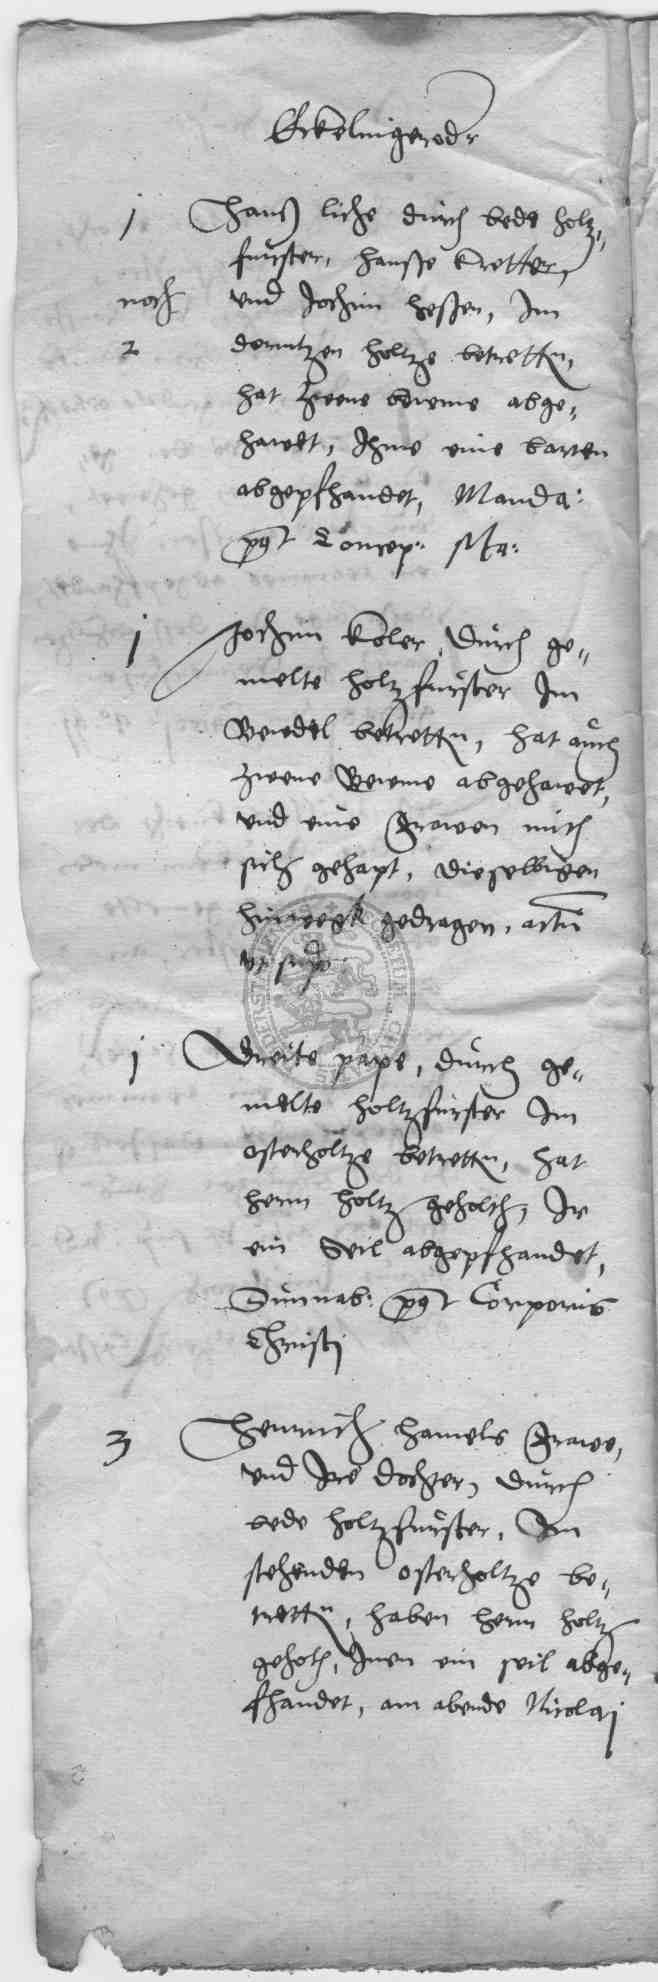 Eckelingerodt
1 Hanß liche durch bede holtz-
fürster, Hanße Kretter,
noch und Jochim Heßen, Im
2 holtze betretten,
hat zweene beweme abge-
hawet, Ihme eine barten
abgepfhandet, Manda:
post Concep: Ma:
1 Jochim Koler, durch ge-
melte holtzfürster Im
betretten, hat auch
zweene Beweme abgehawet,
und eine frawen mith
sich gehapt, dieselbigen
hinwegk gedragen, actum
ut supra
1 Dreite pape, durch ge-
melte holtzfürster Im
osterholtze betretten, hat
henn holtz geholth, Ir
ein Seil abgepfhandet,
Sunnab: post Corporis
Christi
3 Henrich Hamels frawe,
und Ire dochter, durch
bede holtzfürster, Im
stehenden osterholtze be-
tretten, haben henn holtz
geholth, Inen ein seil abge-
fhandet, am abende Nicolaj